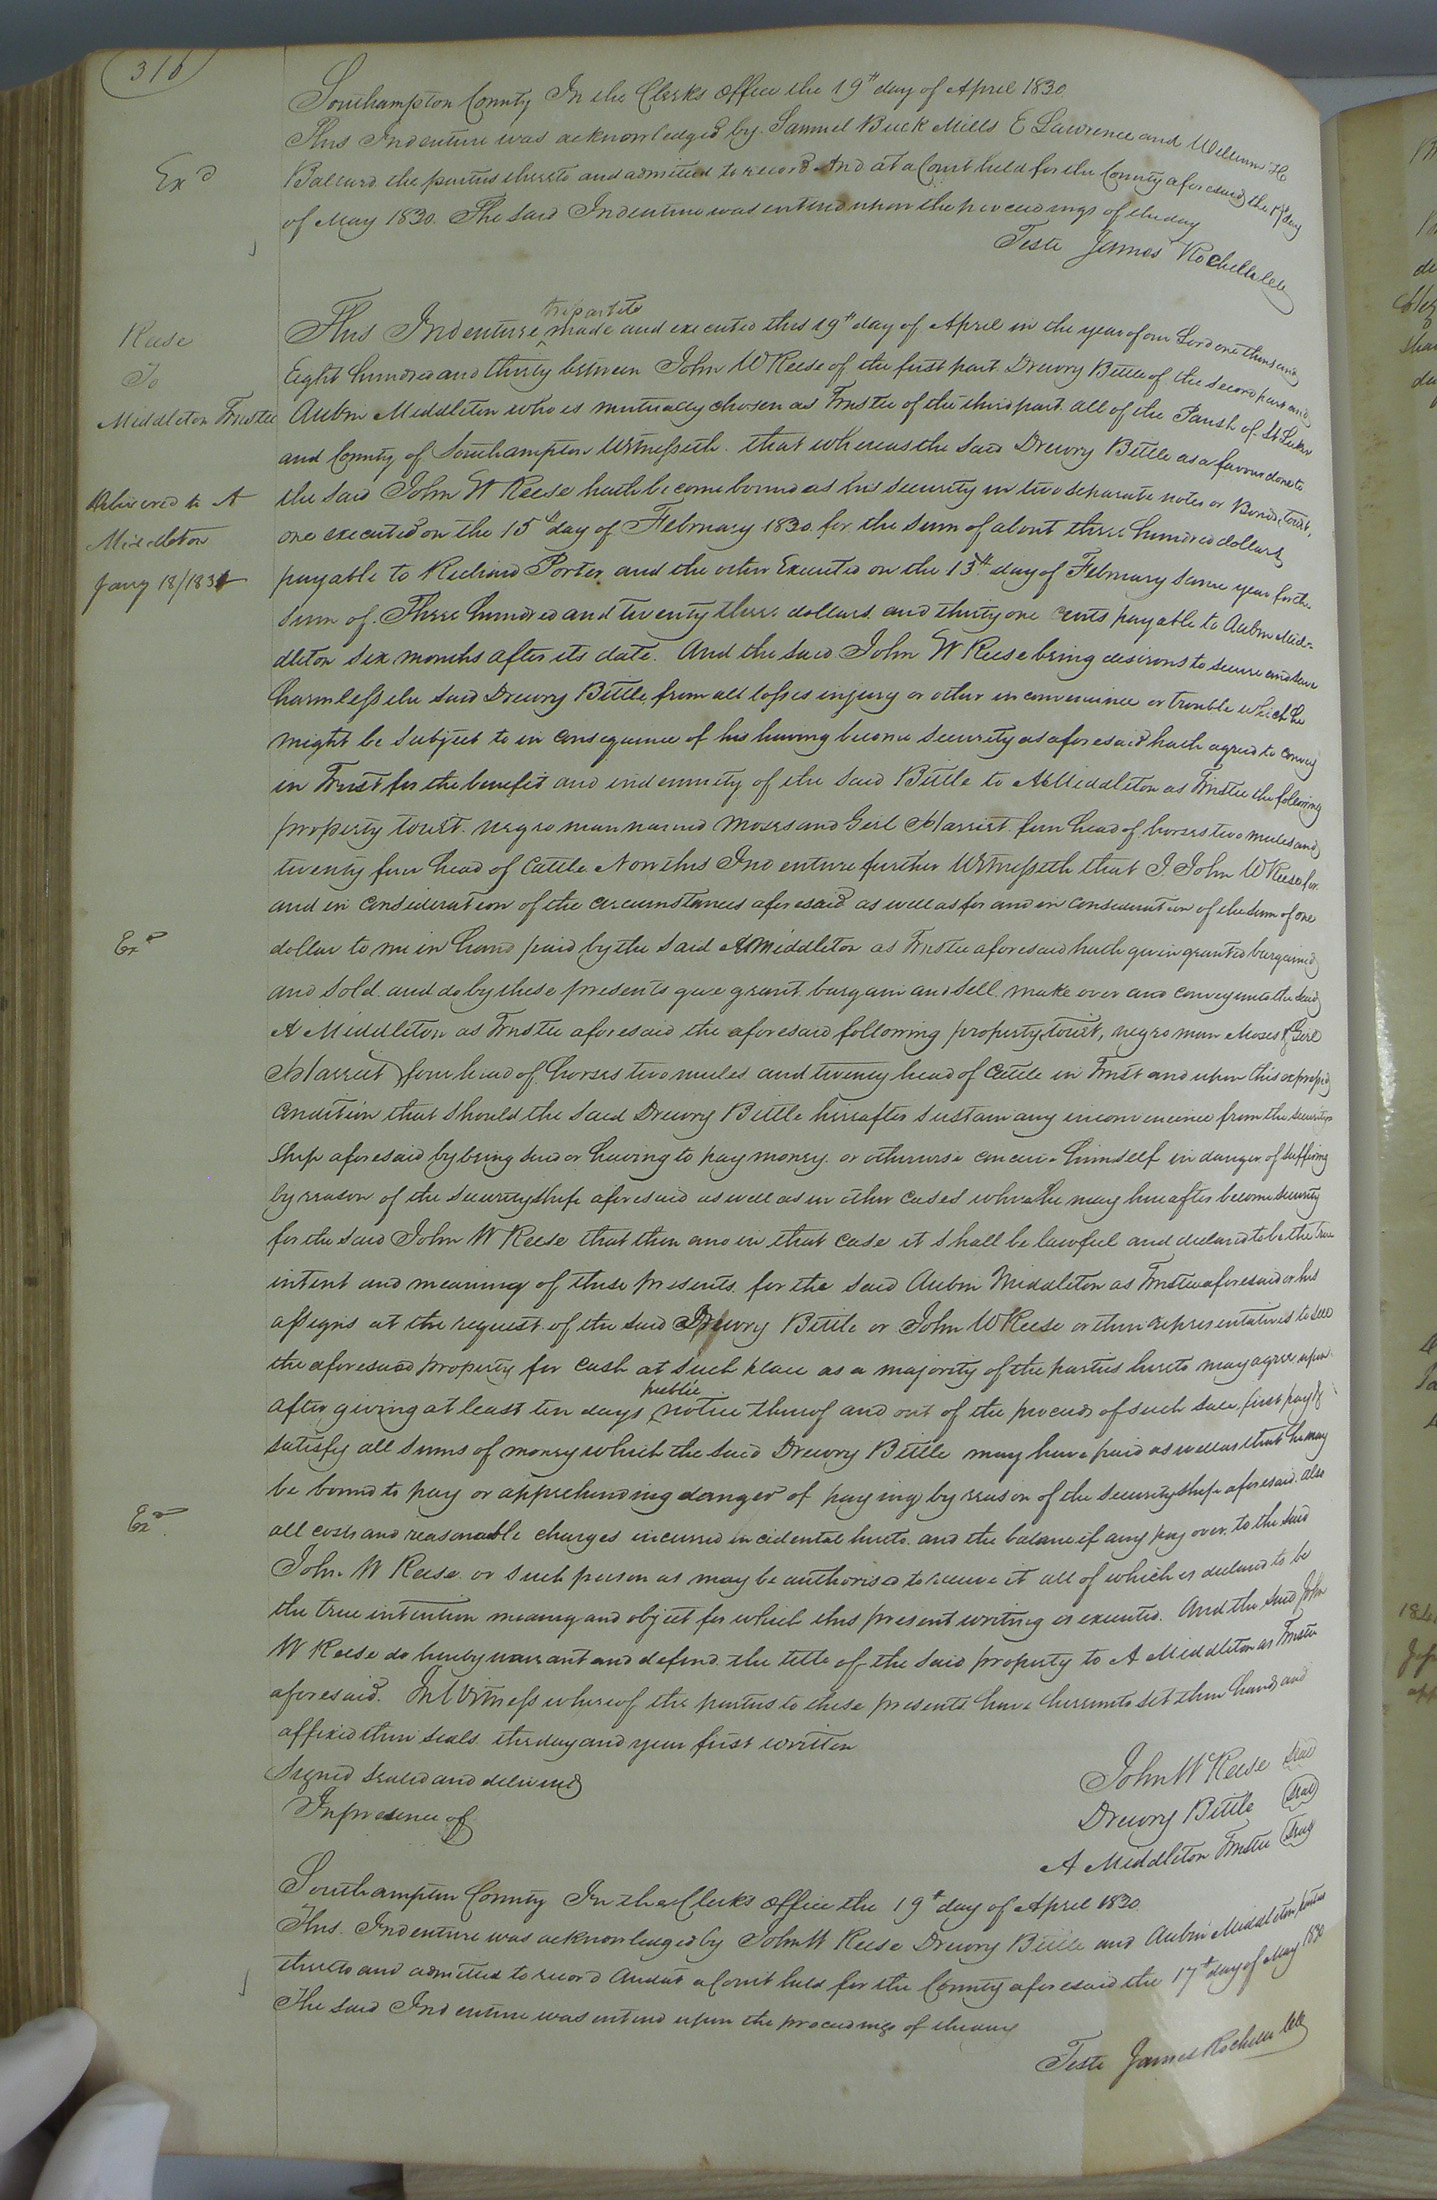 316
Southampton County In the Clerks office the 19th day of April 1830
This Indenture was acknowledged by Samuel Buck Mills E Lawrence and William H
Exd
Ballard the parties thereto and admitted to record And at a Court held for the County aforesaid the 17th day
of May 1830. The said Indenture was entered upon the proceedings of the day
Teste James Rochelle Clk
This Indenture tripartite made and executed this 19th day of April in the year of our Lord one thousand
Reese
To
Middleton Trustee
Eight hundred and thirty between John W Reese of the first part Drewry Bittle of the second part and
Aubin Middleton who is mutually chosen as Trustee of the third part all of the Parish of St Lukes
and County of Southampton Witnesseth. that whereas the said Drewry Bittle as a favour done to
Delivered to A
Middleton
Jany 18/1831
the said John W Reese hath become bound as his security in two separate notes or Bonds, towit,
one executed on the 15th day of February 1830 for the sum of about three hundred dollars
payable to Richard Porter and the other Executed on the 13th day of February same year for the
sum of Three hundred and twenty three dollars and thirty one cents payable to Aubin Mid-
dleton six months after its date. And the said John W Reese being desirous to secure and save
harmless the said Drewry Bittle from all losses injury or other inconvenience or trouble which he
might be subject to in consequence of his having become security as aforesaid hath agreed to convey
in Trust for the benefit and indemnity of the said Bittle to A Middleton as Trustee the following
property towit. negro man named Moses and Girl Harriet four head of horses two mules and
twenty four head of Cattle Now this Indenture further Witnesseth that I John W Reese for
and in consideration of the circumstances aforesaid as well as for and in consideration of the sum of one
Exd
dollar to me in hand paid by the said A Middleton as Trustee aforesaid hath given granted bargained
and sold and do by these presents give grant bargain and sell make over and convey unto the said
A Middleton as Trustee aforesaid the aforesaid following property, towit, negro man Moses & Girl
Harriet four head of horses two mules and twenty head of Cattle in Trust and upon this express
condition that should the said Drewry Bittle hereafter sustain any inconvenience from the security
ship aforesaid by being sued or having to pay money or otherwise conceive himself in danger of suffering
by reason of the securityship aforesaid as well as in other cases where he may hereafter become security
for the said John W Reese that then and in that case it shall be lawful and declared to be the true
intent and meaning of these presents for the said Aubin Middleton as Trustee aforesaid or his
assigns at the request of the said Drewry Bittle or John W Reese or their representatives to sell
the aforesaid property for cash at such place as a majority of the parties hereto may agree upon
after giving at least ten days public notice thereof and out of the proceeds of such sale first pay &
satisfy all sums of money which the said Drewry Bittle may have paid as well as that he may
be bound to pay or apprehending danger of paying by reason of the securityship aforesaid. also
Exd
all costs and reasonable charges incurred incidental hereto and the balance if any pay over to the said
John W Reese or such person as may be authorised to receive it all of which is declared to be
the true intention meaning and object for which this present writing is executed. And the said John
W Reese do hereby warrant and defend the title of the said property to A Middleton as Trustee
aforesaid. In Witness whereof the parties to these presents have hereunto set their hands and
affixed their seals the day and year first written
Signed sealed and delivered
In presence of
John W Reese Seal
Drewry Bittle Seal
A Middleton Trustee Seal
Southampton County In the Clerks office the 19th day of April 1830.
This Indenture was acknowledged by John W Reese Drewry Bittle and Aubin Middleton parties
thereto and admitted to record And at a Court held for the County aforesaid the 17th day of May 1830
The said Indenture was entered upon the proceedings of the day
Teste James Rochelle Clk